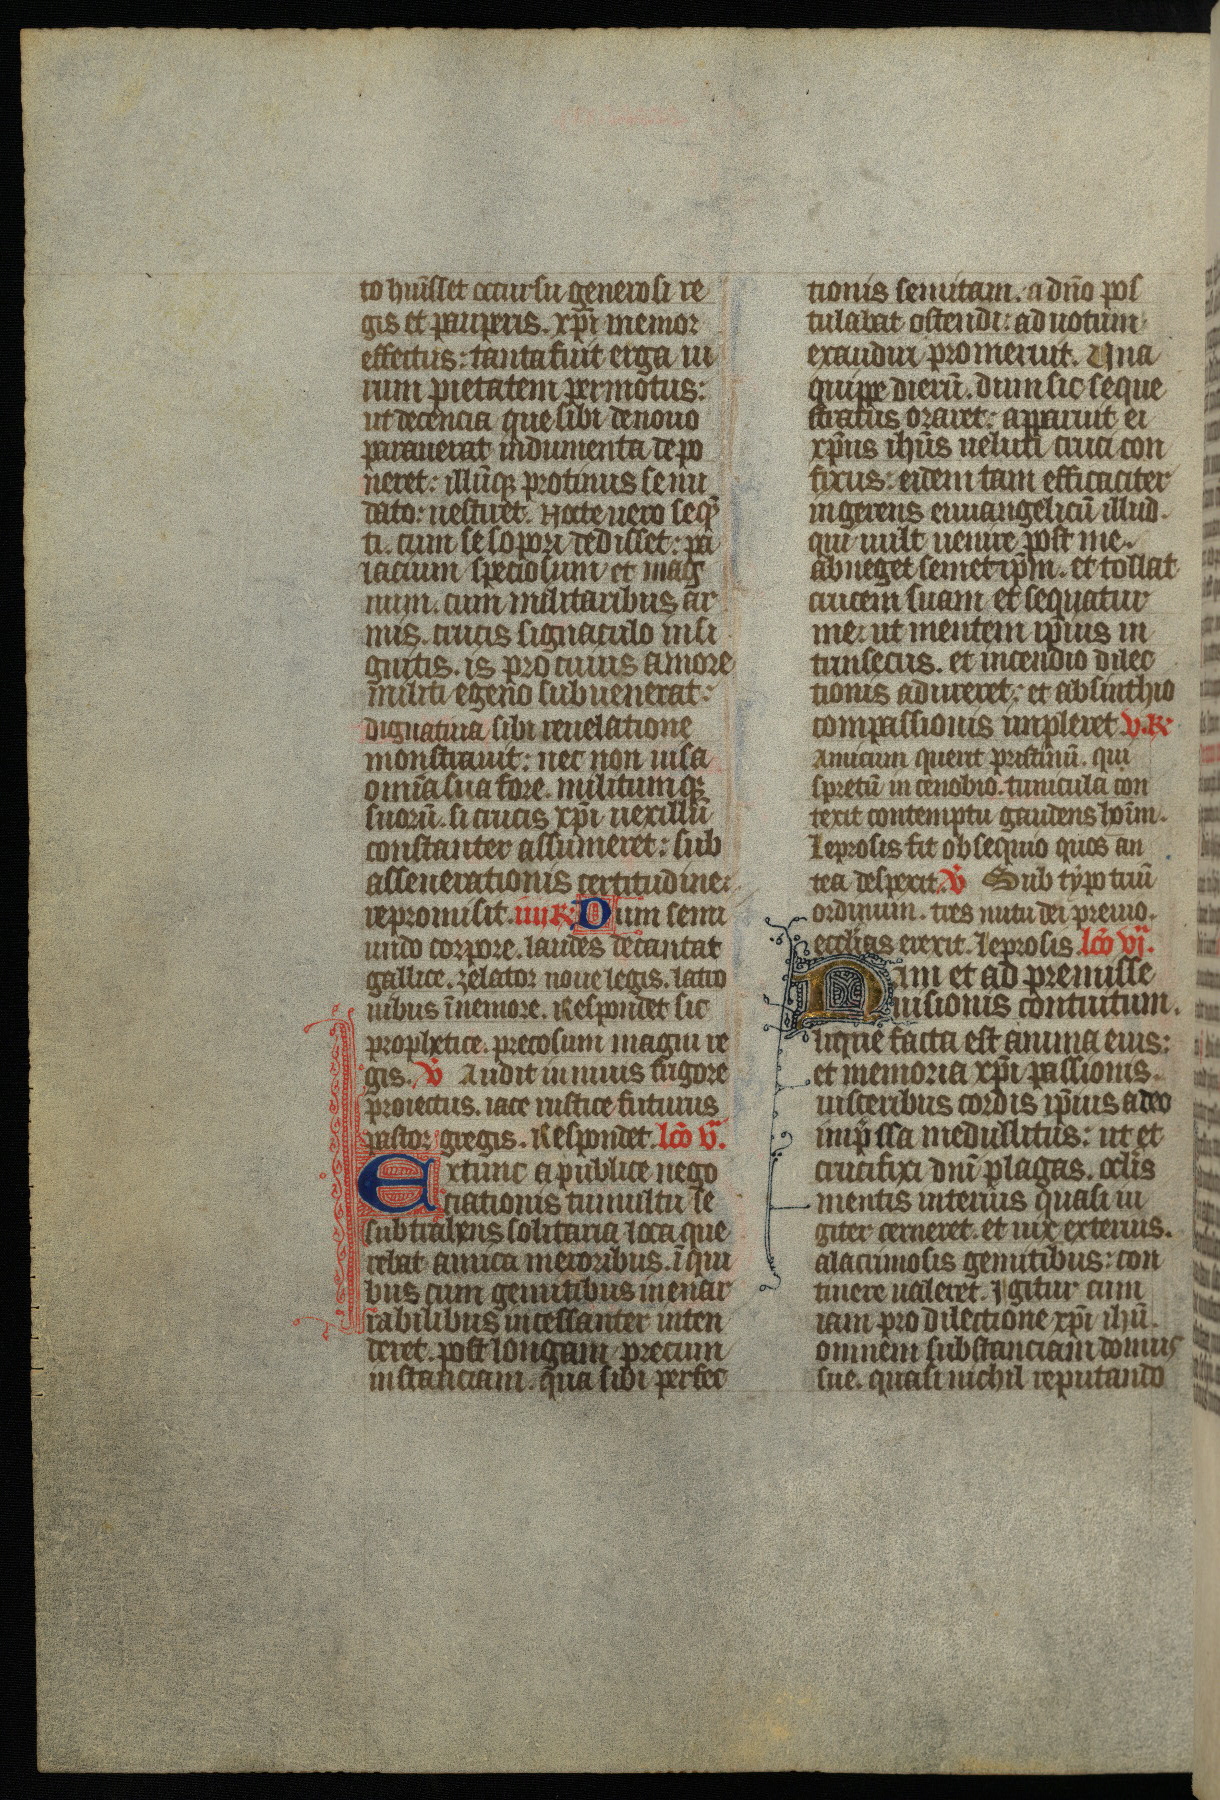 to huisset occursu generosi re
gis et pauperis. xp̄i memor
effectus: tanta fuit erga ui
rum pietatem permotus:
ut decencia que sibi de nouo
parauerat indumenta depo
neret: illūq; protinus se nu
dato: uestiret. Nocte uero seq̄
ti. cum se sopori dedisset: pa
lacium speciosum et mag
num. cum militaribus ar
mis. crucis signaculo insi
gnitis. is pro cuius amore
militi egeno subuenerat:
dignatiua sibi reuelatione
monstrauit: nec non uisa
omīa sua fore. militumq;
suorū. si crucis xp̄i uexillū
constanter assumeret: sub
asseuerationis certitudine:
repromisit. iiij R̷. Dum semi
nudo corpore. laudes decantat
gallice. zelator noue legis. latro
nibus ī nemore. Respondet sic
prophetice. preco sum magni re
gis. v̄ Audit in niuis frigore
proiectus. iace rustice futurus
pastor gregis. Respondet. lc̄o v̄.
Extunc a publice nego
ciationis tumultu se
subtrahens solitaria loca que
rebat amica meroribus. ī qui
bus cum gemitibus inenar
rabilibus incessanter inten
deret. post longam precum
instanciam. qua sibi perfec
tionis semitam. a dn̄o pos
tulabat ostendi: ad uotum
exaudiri promeruit. Una
quippe dierū. dum sic seque
stratus oraret: apparuit ei
xp̄us ihūs ueluti cruci con
fixus: eidem tam efficaciter
ingerens euuangelicū illud.
qui uult uenire post me.
abneget semet ip̄m. et tollat
crucem suam et sequatur
me: ut mentem ip̄ius in
trinsecus. et incendio dilec
tionis adureret: et absinthio
compassionis impleret v. R̷.
Amicum querit pristinū. qui
spretū in cenobio. tunicula con
texit contemptu gaudens hoīm.
Leprosis fit obsequio quos an
tea despexit. v̄ Sub typo triū
ordinum. tres nutu dei preuio.
ecclīas erexit. Leprosis. lc̄o vj.
Nam et ad premisse
uisionis contuitum.
lique facta est anima eius:
et memoria xp̄i passionis.
uisceribus cordis ip̄ius adeo
imp̄ssa medullitus: ut et
crucifixi dn̄i plagas. oclīs
mentis interius quasi iu
giter cerneret. et uix exterius.
a lacrimosis gemitibus: con
tinere ualeret. Igitur cum
iam pro dilectione xp̄i ihū.
omnem substanciam domus
sue. quasi nichil reputando